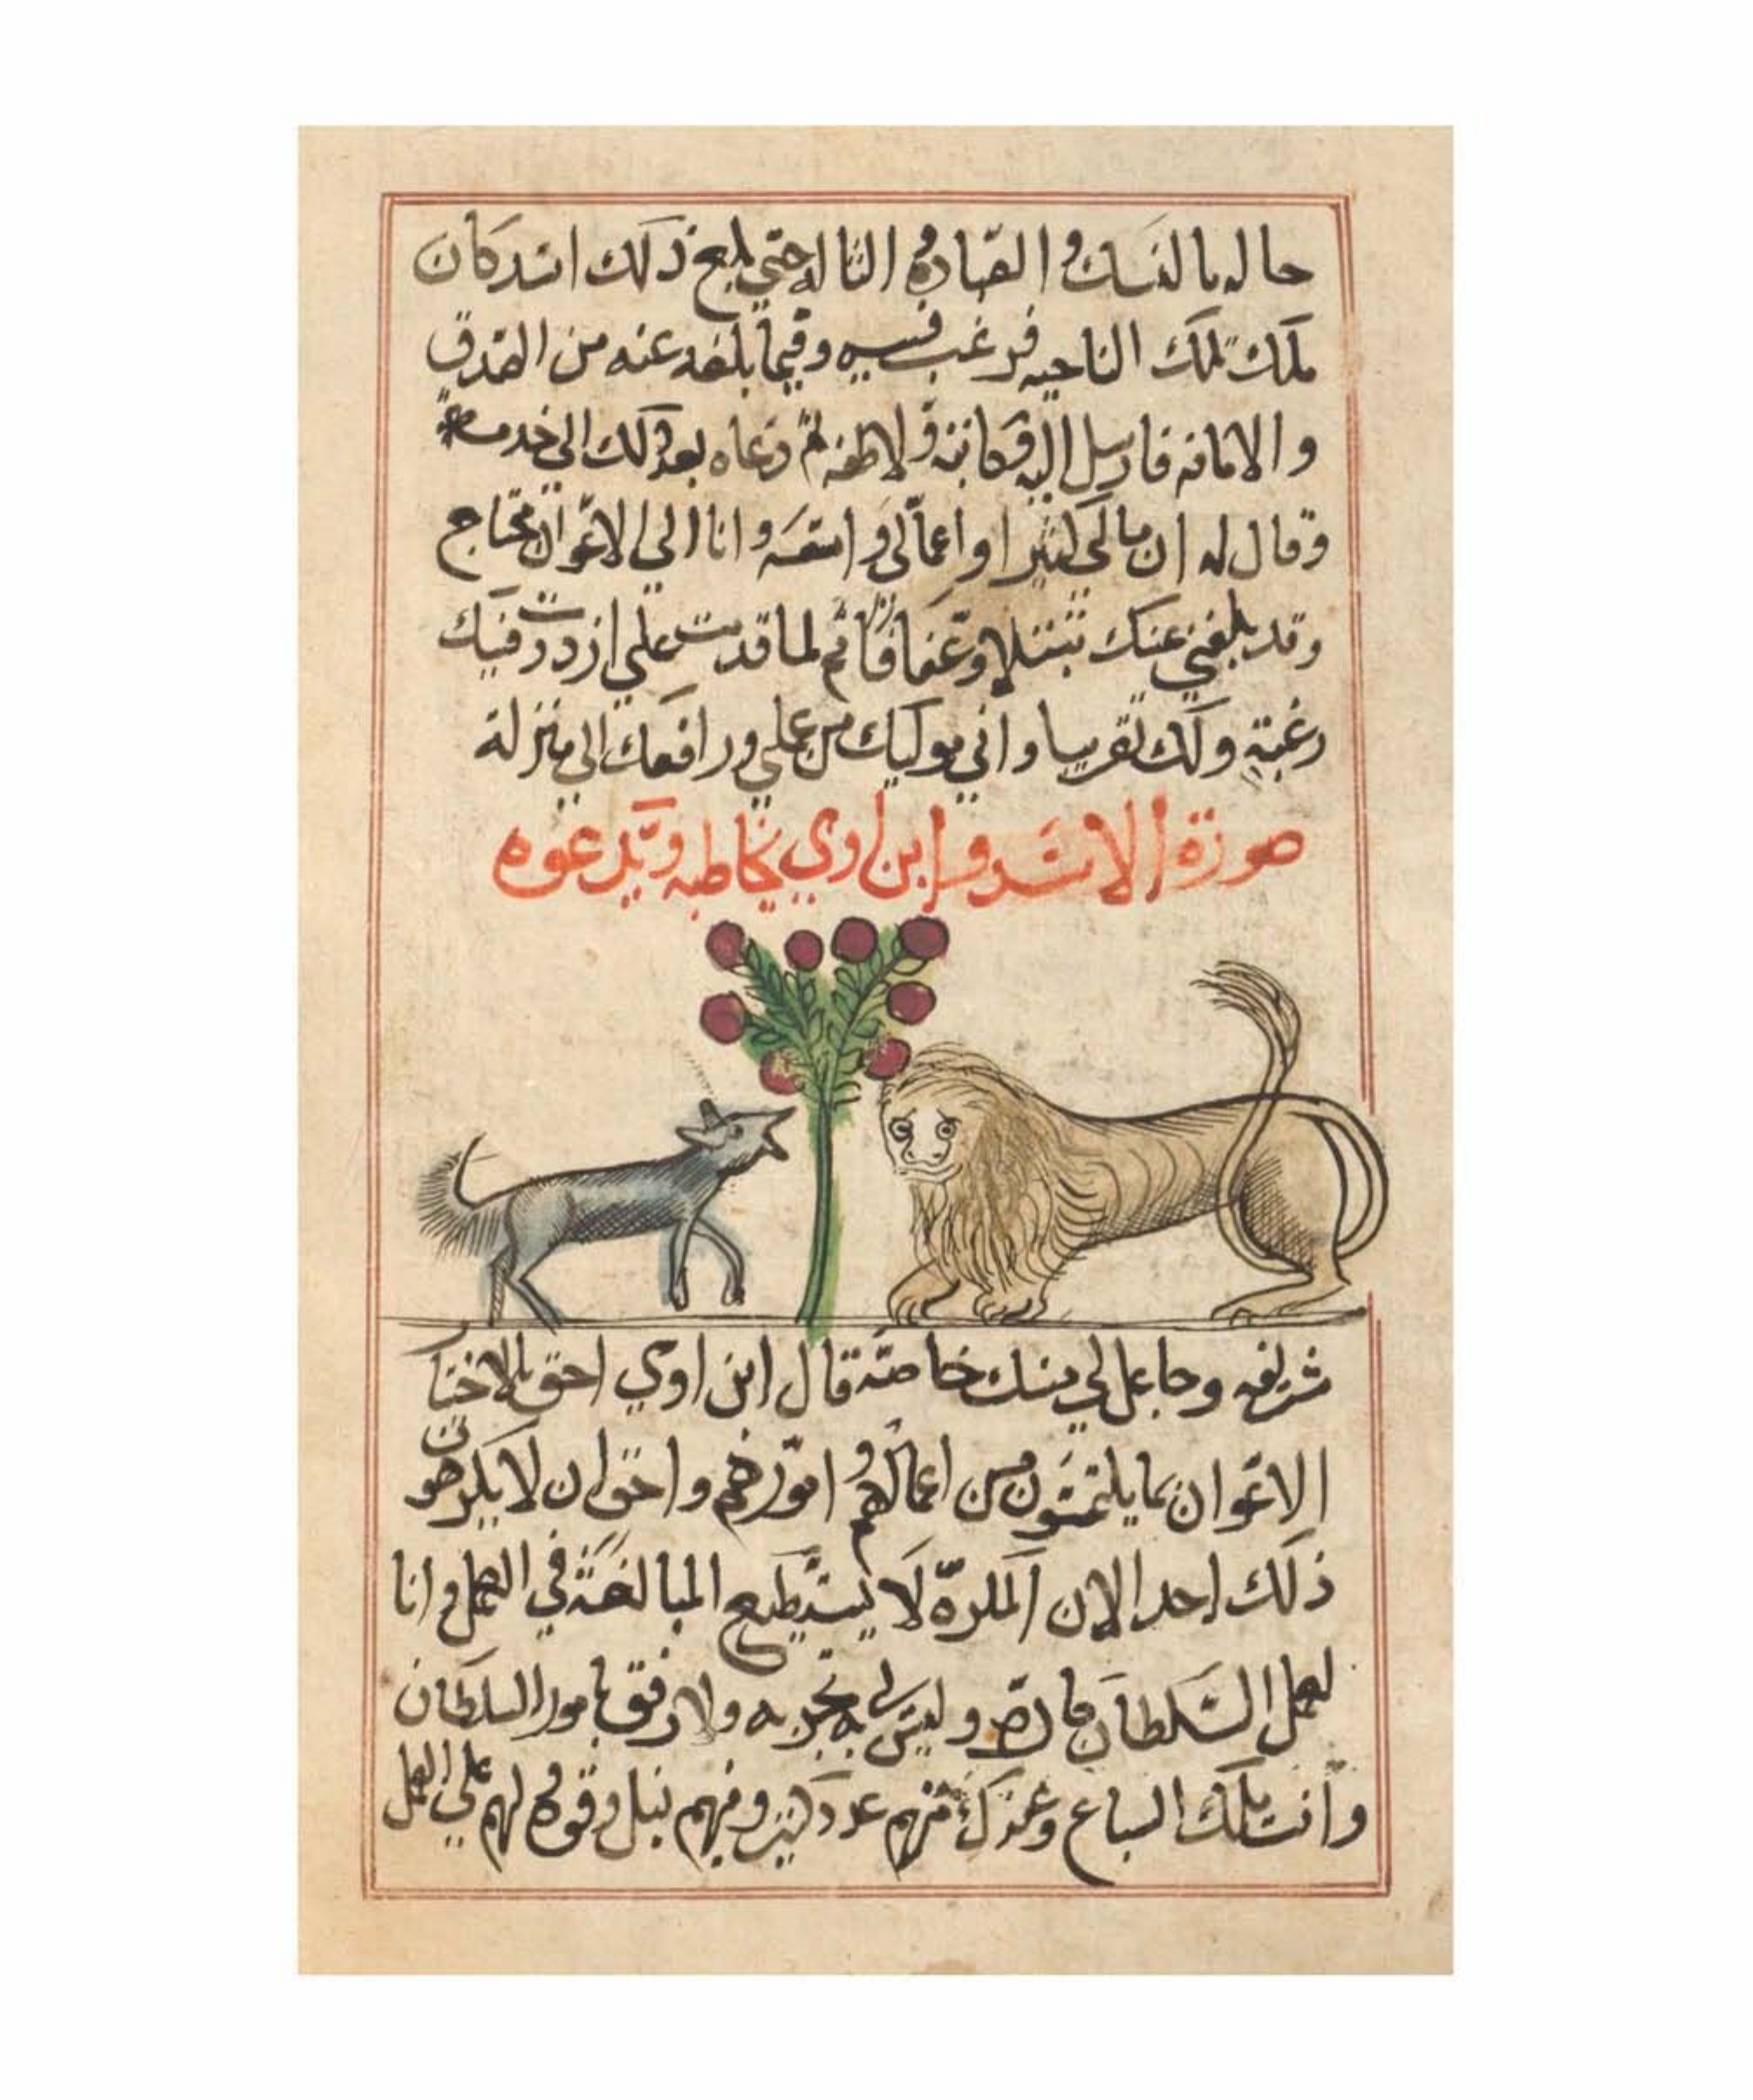 حاله بالنسك والعباده والتاله حتي بلغ ذلك اسد كان
ملك تلك الناحيه فرغب فيه وفيما بلغه عنه من الصدق
والامانه فارسل اليه وكاتبه ولاطفه ثم دعاه بعد ذلك الي خدمته
وقال له ان مالي كثيرا واعمالي واسعه وانا الي الاعوان محتاج
وقد بلغني عنك تبتلا وعفافا ثم لما قدمت علي ازددت فيك
رغبة ولك تقريبا واني موليك من عملي ورافعك الي منزله
صورة الاسد وابن اوي يخاطبه ويدعوه
شريفه وجاعل لي منك خاصة قال ابن اوي احق بالاختيا
الاعوان بما يلتمسون من اعمالهم وامورهم واحق ان لا يكرهون
ذلك احد الان المكره لا يستطيع المبالغة في العمل وانا
لعمل السلطان كاره وليس لي به تجربه ولا رفق بامور السلطان
وانت ملك السباع وعندك منهم عدد كثير وفيهم نبل وقوة ولهم علي العمل